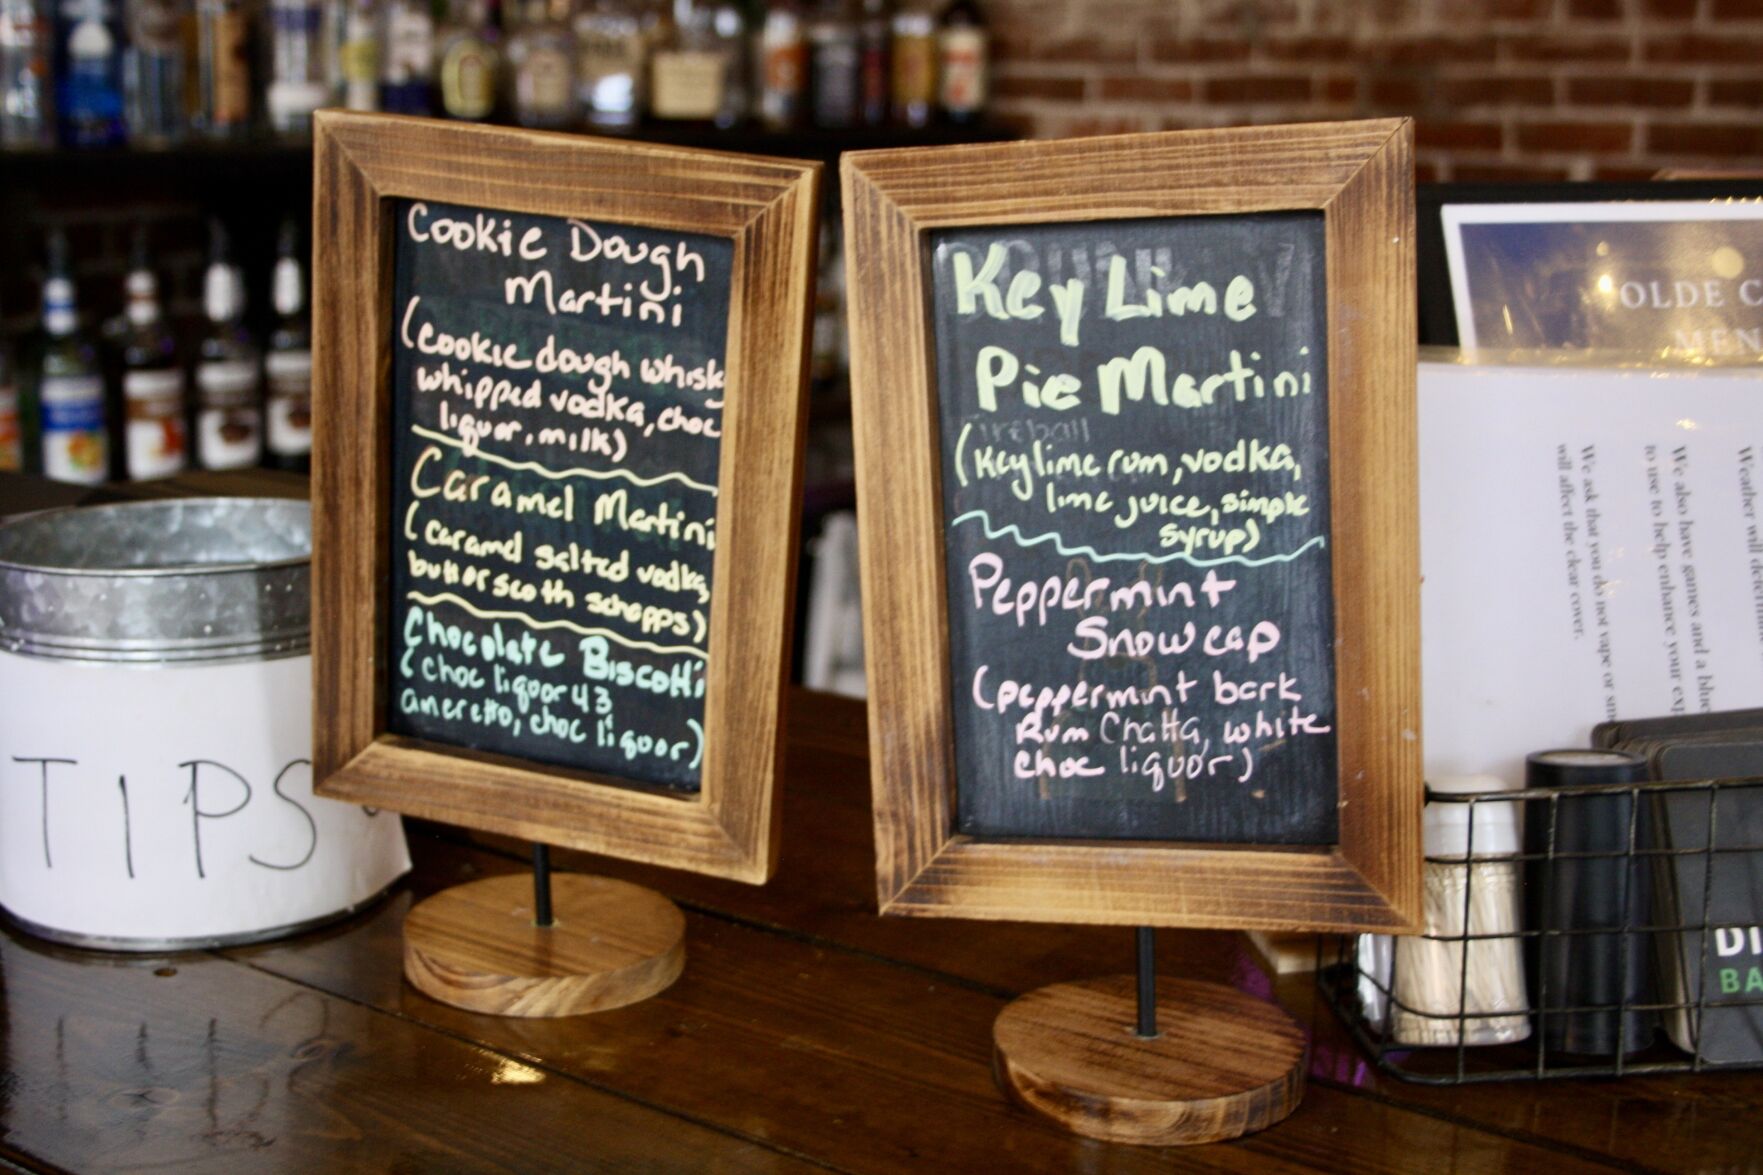 Cookie Dough
Martini
(Cookie dough whisk
whipped vodka, choc
liquor, milk)
Caramel Martini
(caramel salted vodka,
butterscoth schapps)
Chocolate Biscotti
(choc liquor 43
ameretto, choc liquor)
Key Lime
Pie Martini
ireball
(Key lime rum, vodka,
lime juice, simple
syrup)
Peppermint
Snowcap
(peppermint bark
Rum Chatta, white
choc liquor)
TIPS
OLDE C
MEN
We ask that you do not vape or sm
will affect the clear cover.
We also have games and a
to use to help enhance your exp
Weather will
DI
BA